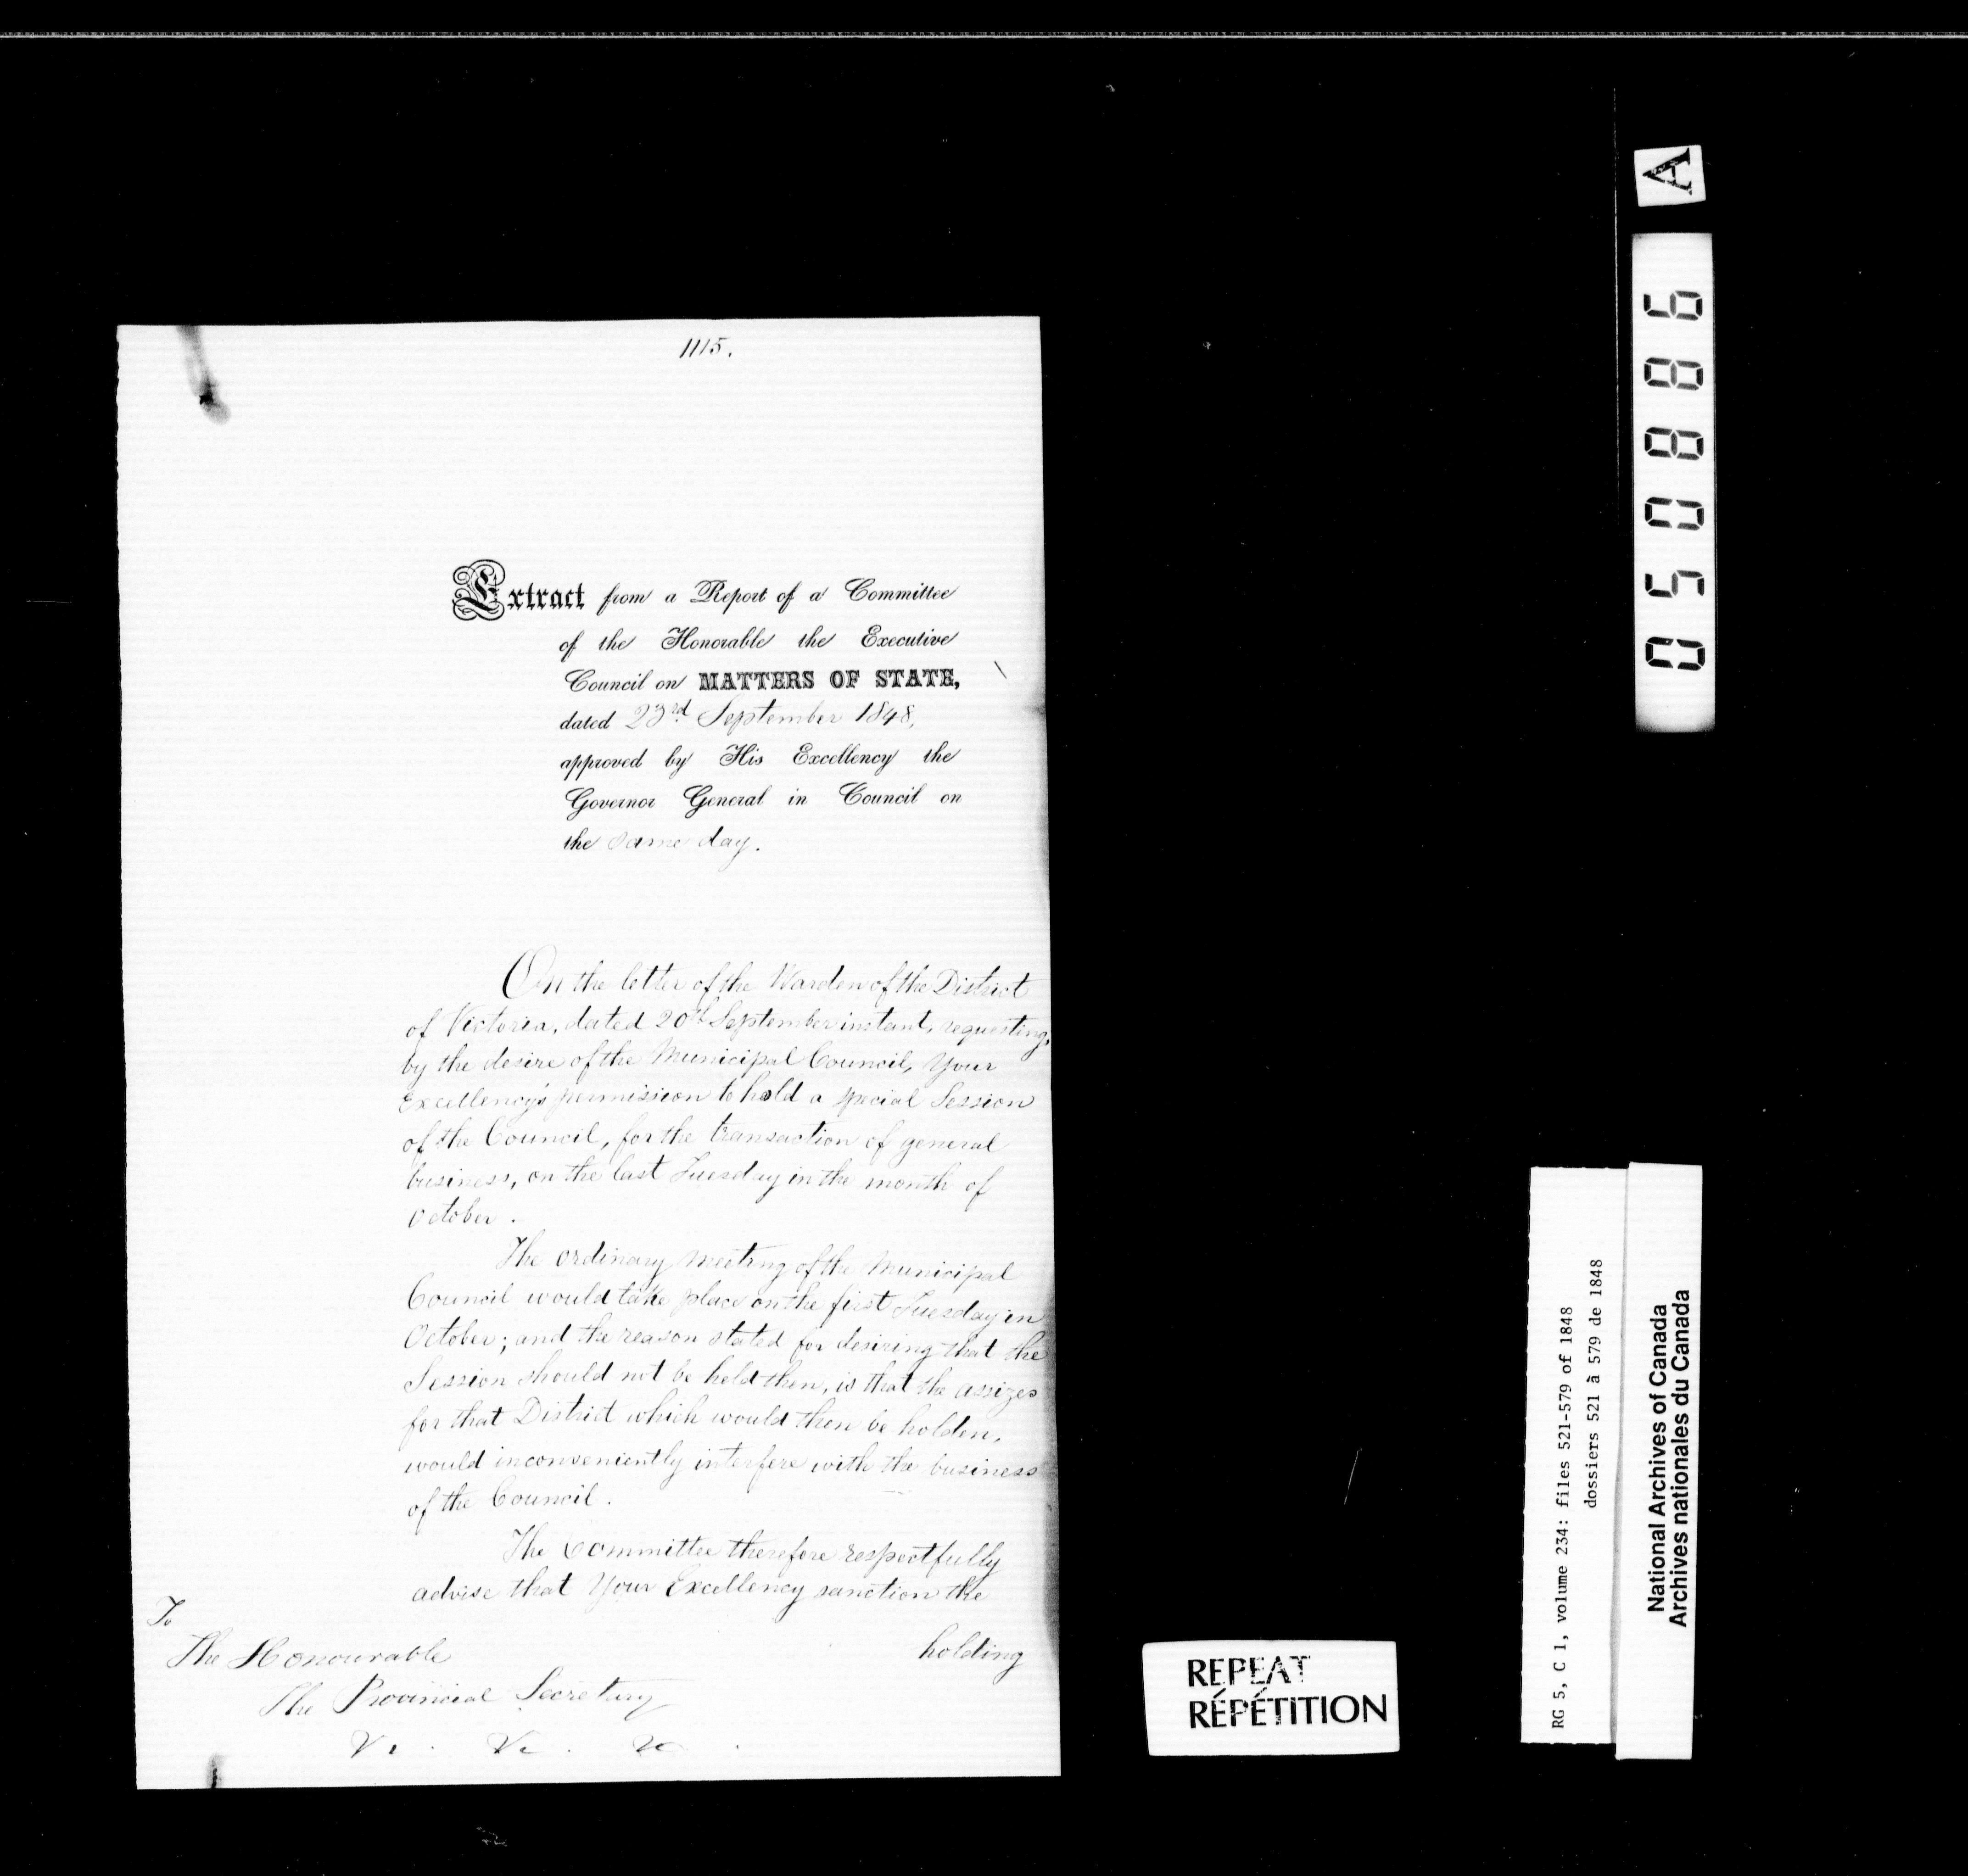 1115.
Extract from a Report of a Committee
of the Honorable the Executive
Council on MATTERS OF STATE,
dated 23rd September 1848,
approved by His Excellency the
Governor General in Council on
the same day.
On the letter of the Warden of the District
of Victoria, dated 20th September instant, requesting,
by the desire of the Municipal Council, Your
Excellency's permission to hold a special Session
of the Council, for the transaction of general
business, on the last Tuesday in the month of
October.
The ordinary meeting of the Municipal
Council would take place on the first Tuesday in
October; and the reason stated for desiring that the
Session should not be held then, is that the assizes
for that District which would then be holden,
would inconveniently interfere with the business
of the Council.
The Committee therefore respectfully
advise that Your Excellency sanction the
holding
To
The Honourable
The Provincial Secretary
&c. &c. &c.
A
050886
REPEAT
RÉPÉTITION
RG 5, C 1, volume 234: files 521-579 of 1848
dossiers 521 à 579 de 1848
National Archives of Canada
Archives nationales du Canada